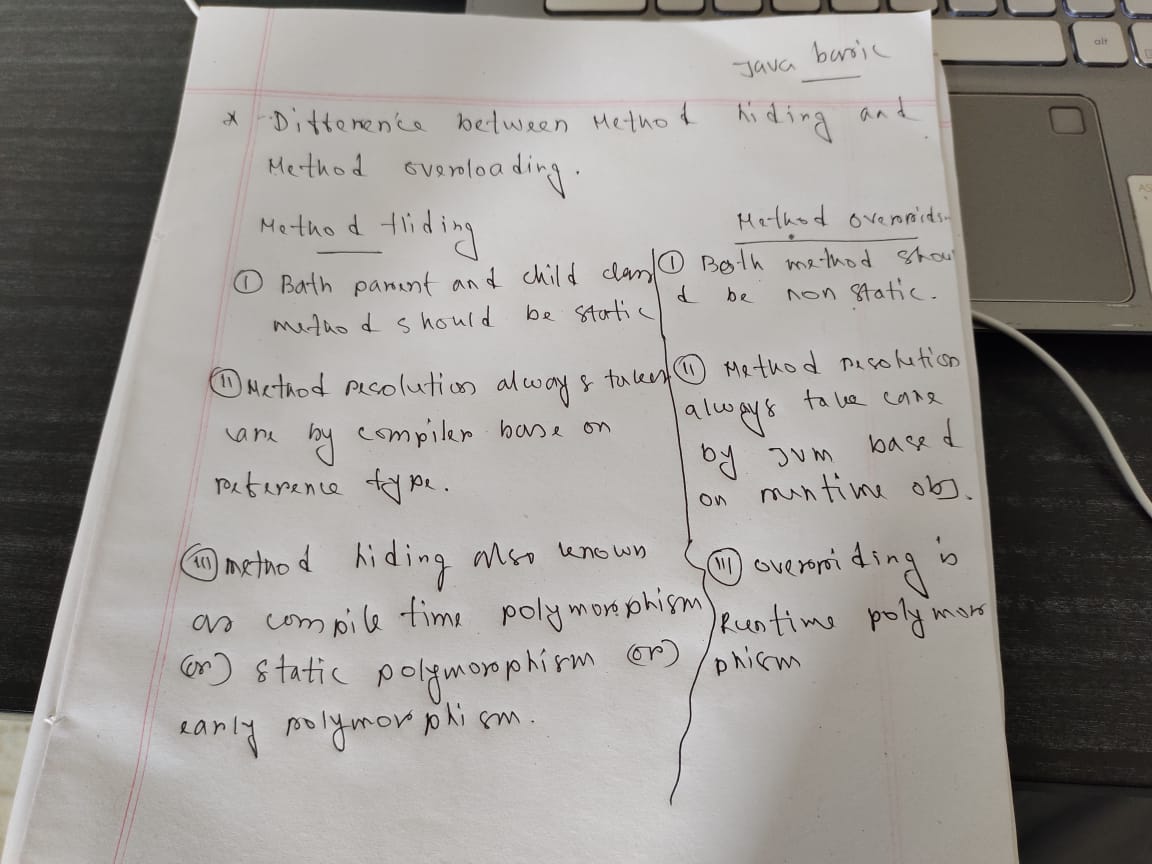 Java basic
* Difference between Method hiding and
Method overloading.
Method Hiding
① Both parent and child class
method should be static
⑪ Method resolution always taken
care by compiler base on
reference type.
⑪⑪ method hiding also known
as compile time polymorphism
(or) static polymorphism (or)
early polymorphism.
Method overriding
① Both method shoul
d be non static.
⑪ Method resolution
always take care
by JVM based
on runtime obj.
⑪⑪ overriding is
Runtime polymor
phism
alt